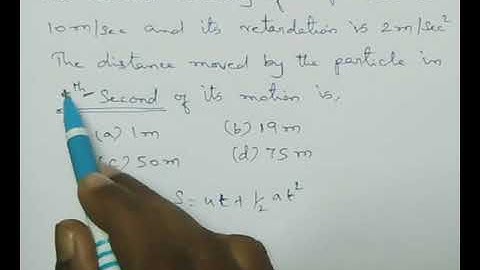 10 m/sec and its retardation is 2 m/sec²
The distance moved by the particle in
th Second of its motion is,
(a) 1m (b) 19m
(c) 50m (d) 75m
S = ut + 1/2 at²